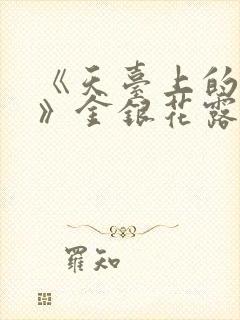 《天臺上的
》金銀花露
羅知